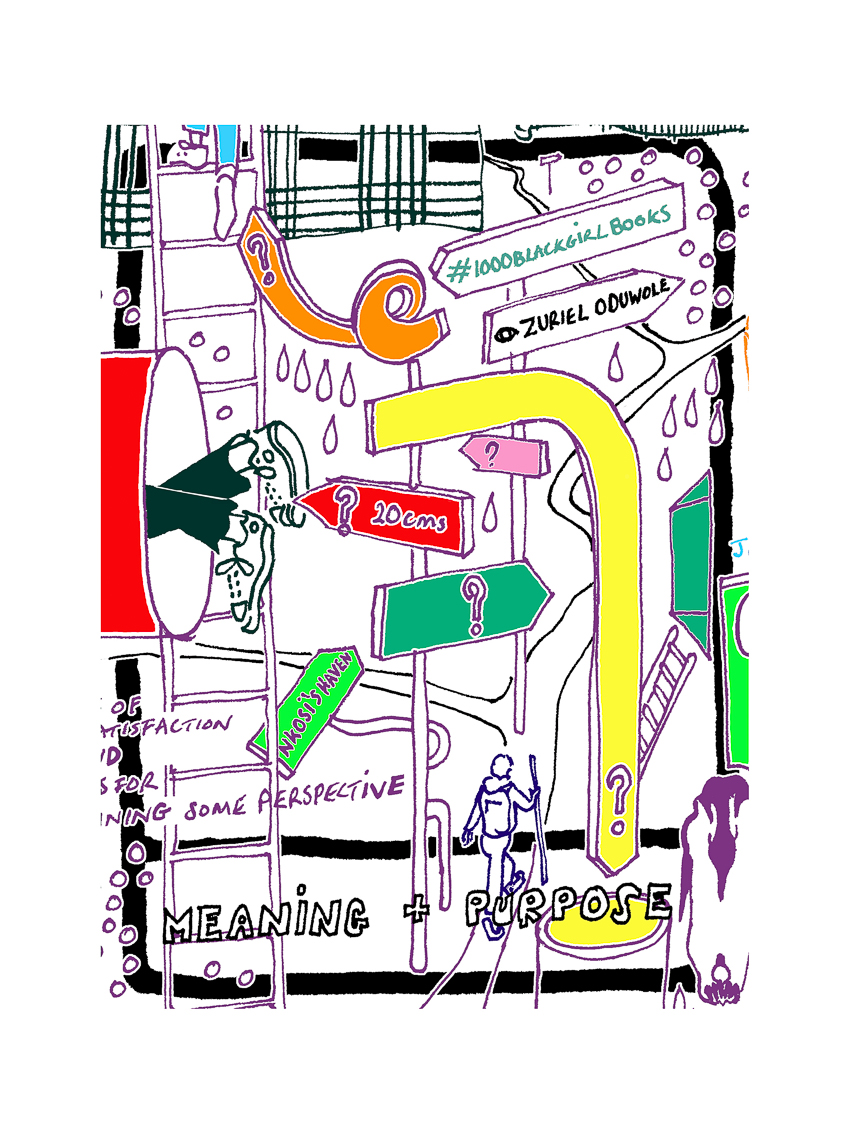 ?
#1000BLACKGIRLBOOKS
ZURIEL ODUWOLE
?
? 20cms
?
J
NKOSI'S HAVEN
OF
ATISFACTION
D
S FOR
NING SOME PERSPECTIVE
?
MEANING + PURPOSE